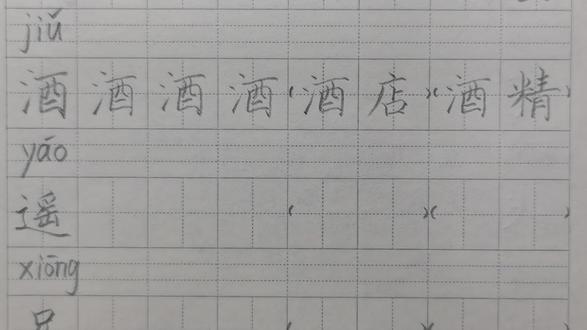 jiǔ
酒 酒 酒 酒 (酒 店) (酒 精)
yáo
遥 ( ) ( )
xiōng